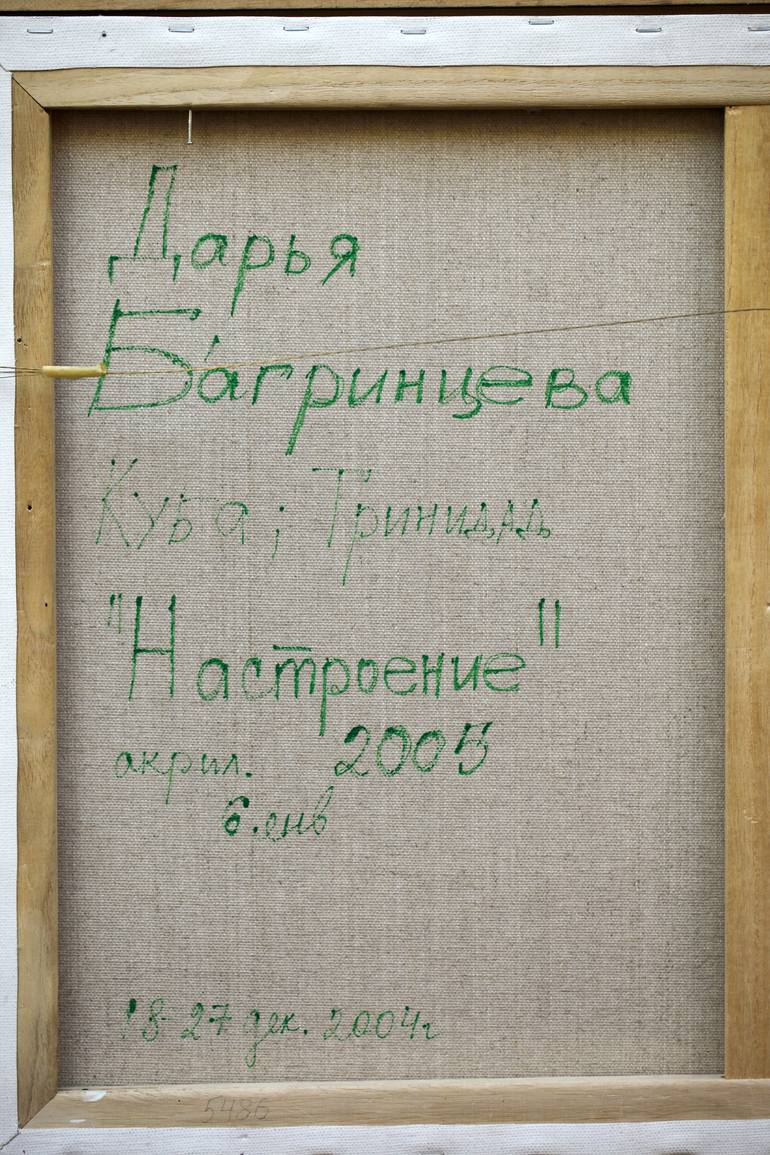 Дарья
Багринцева
Куба; Тринидадъ
"Настроение"
акрил. 2005
6.енв
18-27 дек. 2004г
5486